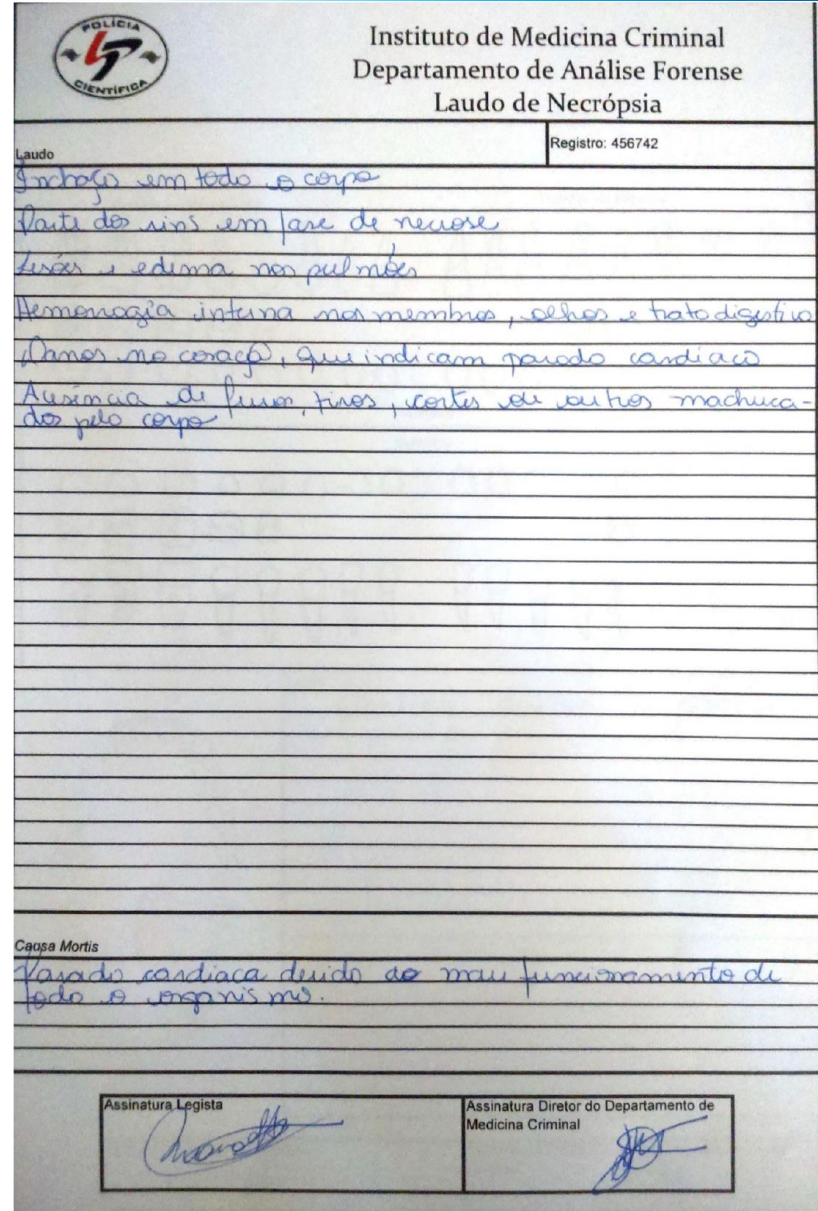 POLÍCIA
CIENTÍFICA
Instituto de Medicina Criminal
Departamento de Análise Forense
Laudo de Necrópsia
Laudo
Registro: 456742
Inchaço em todo o corpo
Parte dos rins em fase de necrose
Lesões e edema nos pulmões
Hemorragia interna nos membros, olhos e trato digestivo
Danos no coração, que indicam parada cardíaca
Ausência de furos, tiros, cortes ou outros machuca-
dos pelo corpo
Causa Mortis
Parada cardíaca devido ao mau funcionamento de
todo o organismo.
Assinatura Legista
Assinatura Diretor do Departamento de
Medicina Criminal